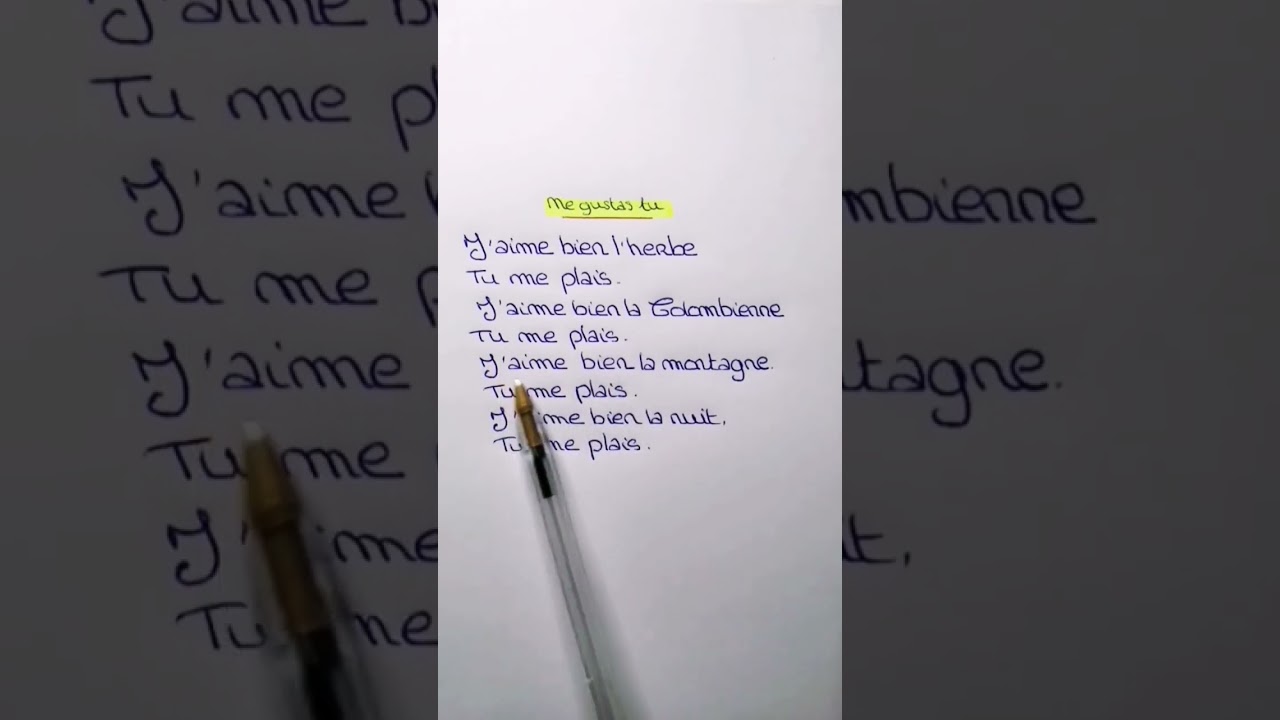 Me gustas tu
J'aime bien l'herbe
Tu me plais.
J'aime bien la Colombienne
Tu me plais.
J'aime bien la montagne.
Tu me plais.
J'aime bien la nuit,
Tu me plais.